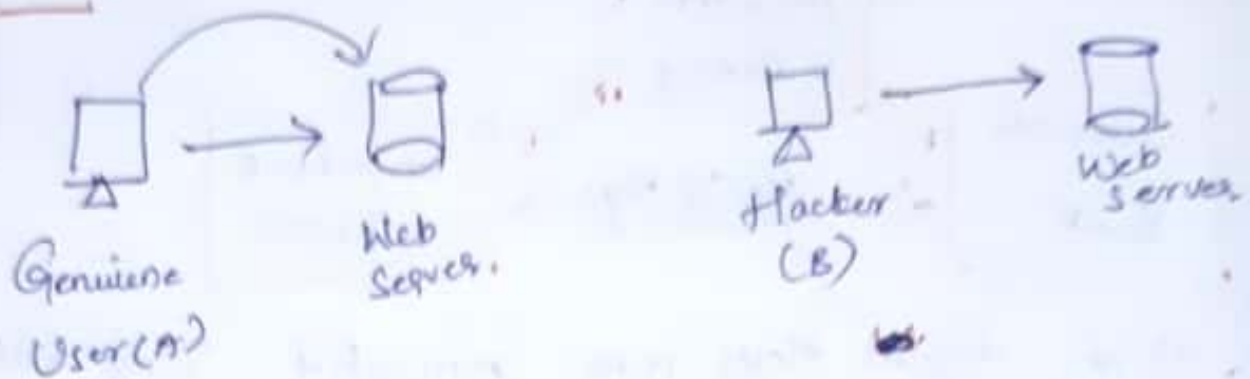 Genuiene
User(A)
Web
Server.
Hacker
(B)
Web
Server.